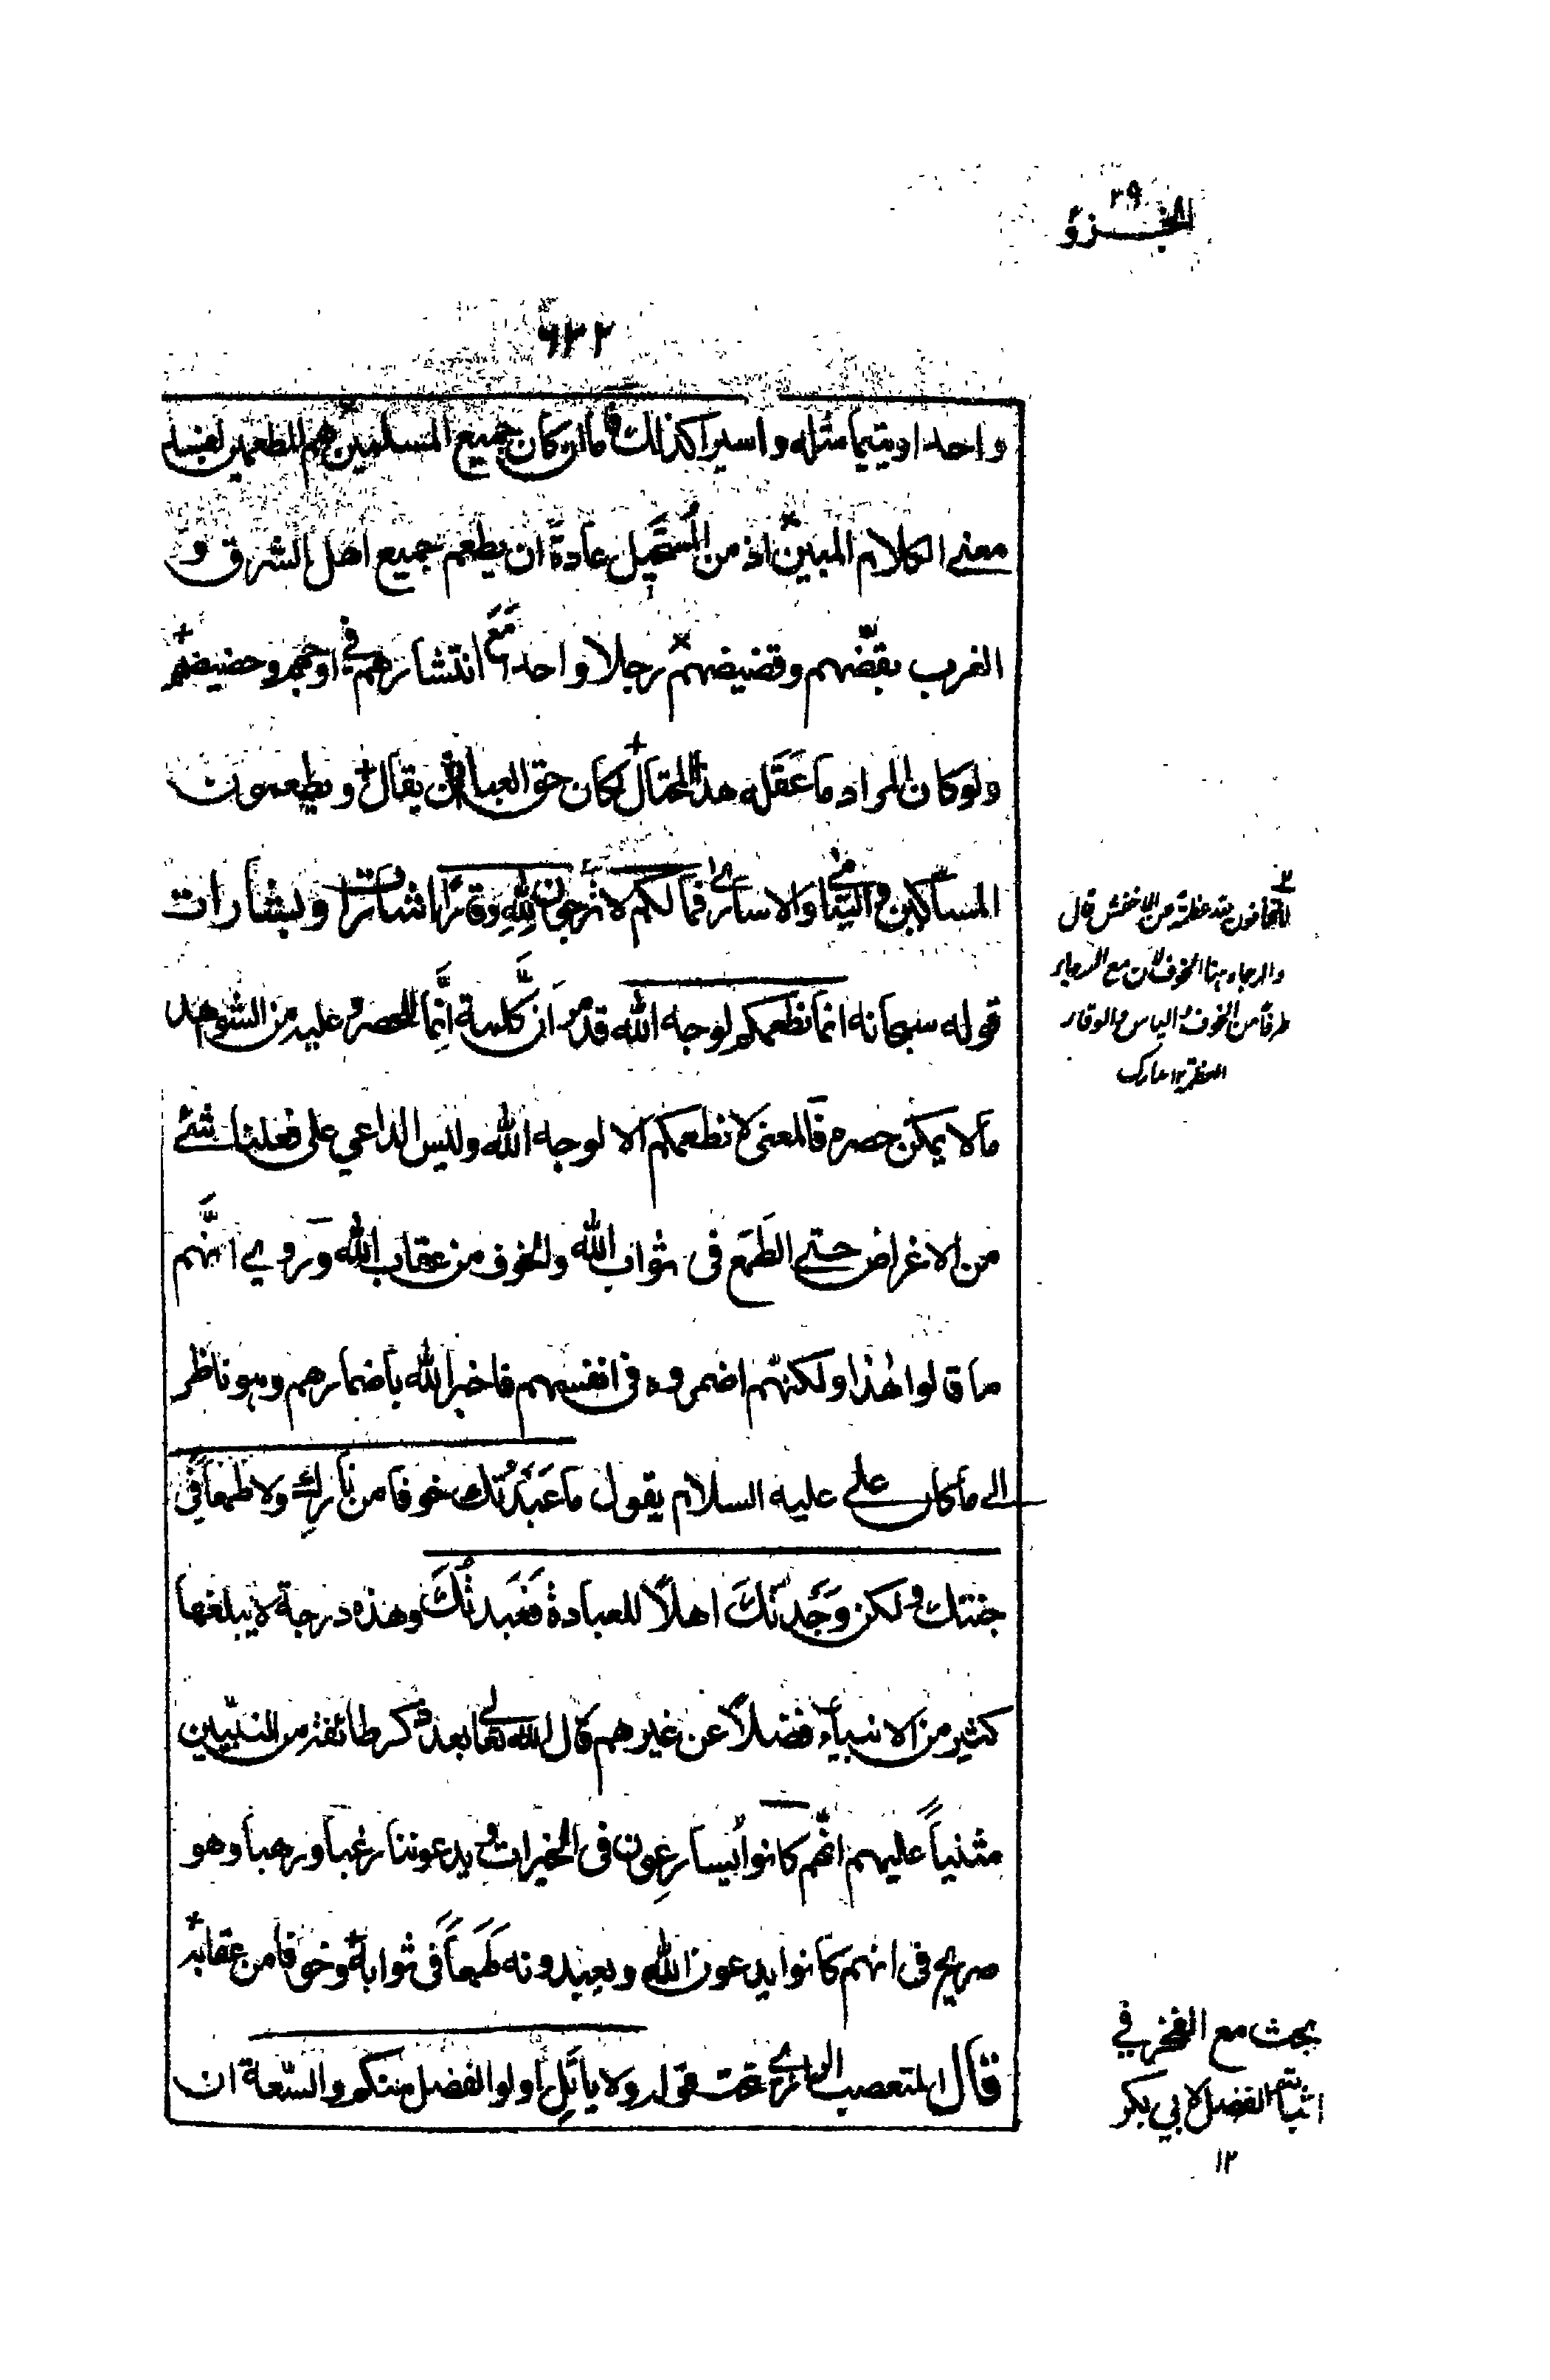 الجزؤ ٢٩
٦٣٢
واحدا ويتيما مثله واسيرا كذلك فاما ان كان جميع المسلمين هم المطعمين لفسد
معنى الكلام المبين اذ من المستحيل عادة ان يطعم جميع اهل الشرق و
الغرب بقضهم وقضيضهم رجلا واحدا مع انتشارهم في اوجهم وحضيضهم
ولو كان المراد ما عَقَله هذا المحتال لكان حق العبارة ان يقال ويطعمون
المساكين و اليتامى والاسارى فما لكم لا ترجون لِلّهِ وقارًا اشارات وبشارات
قوله سبحانه انما نطعمكم لوجه الله قد مر انّ كلمة اِنَّما للحصر و عليه من الشواهد
ما لا يمكن حصره فالمعنى لا نطعمكم الا لوجه الله وليس الداعي على فعلنا شئ
من الاغراض حتى الطَمَع في ثواب الله والخوف من عقاب الله وروي انَّهم
ما قالوا هٰذا ولكنّهم اضمروه في انفسهم فاخبر الله باضمارهم وهو ناظر
الى ما كان علي عليه السلام يقول ما عَبَدْتُك خوفا من نارِك ولا طمعاً في
جنتك و لكن وَجَدْتُكَ اهلًا للعبادة فَعَبَدتُكَ وهذه درجة لا يبلغها
كثير من الانبياء فضلاً عن غيرهم قال الله تعالى بعد ذكر طائفة من النبّيين
مثنياً عليهم انّهم كانوا يسارعِون في الخيرات و يدعوننا رغبا ورهبا وهو
صريح في انهم كانوا يدعون الله ويعبدونه طَمَعاً في ثوابه وخوفا من عقابه
قال المتعصب الرازي تحت قوله ولا يأتَلِ اولوا الفضل منكم والسّعة ان
لا تخافون لله عظمة عن الاخفش قال
والرجاء ههنا الخوف لان مع الرجاء
طرفا من الخوف و الياس والوقار
العظمة ١٢ مدارك
بحث مع الفخر في
اثباته الفضل لابي بكر
١٢